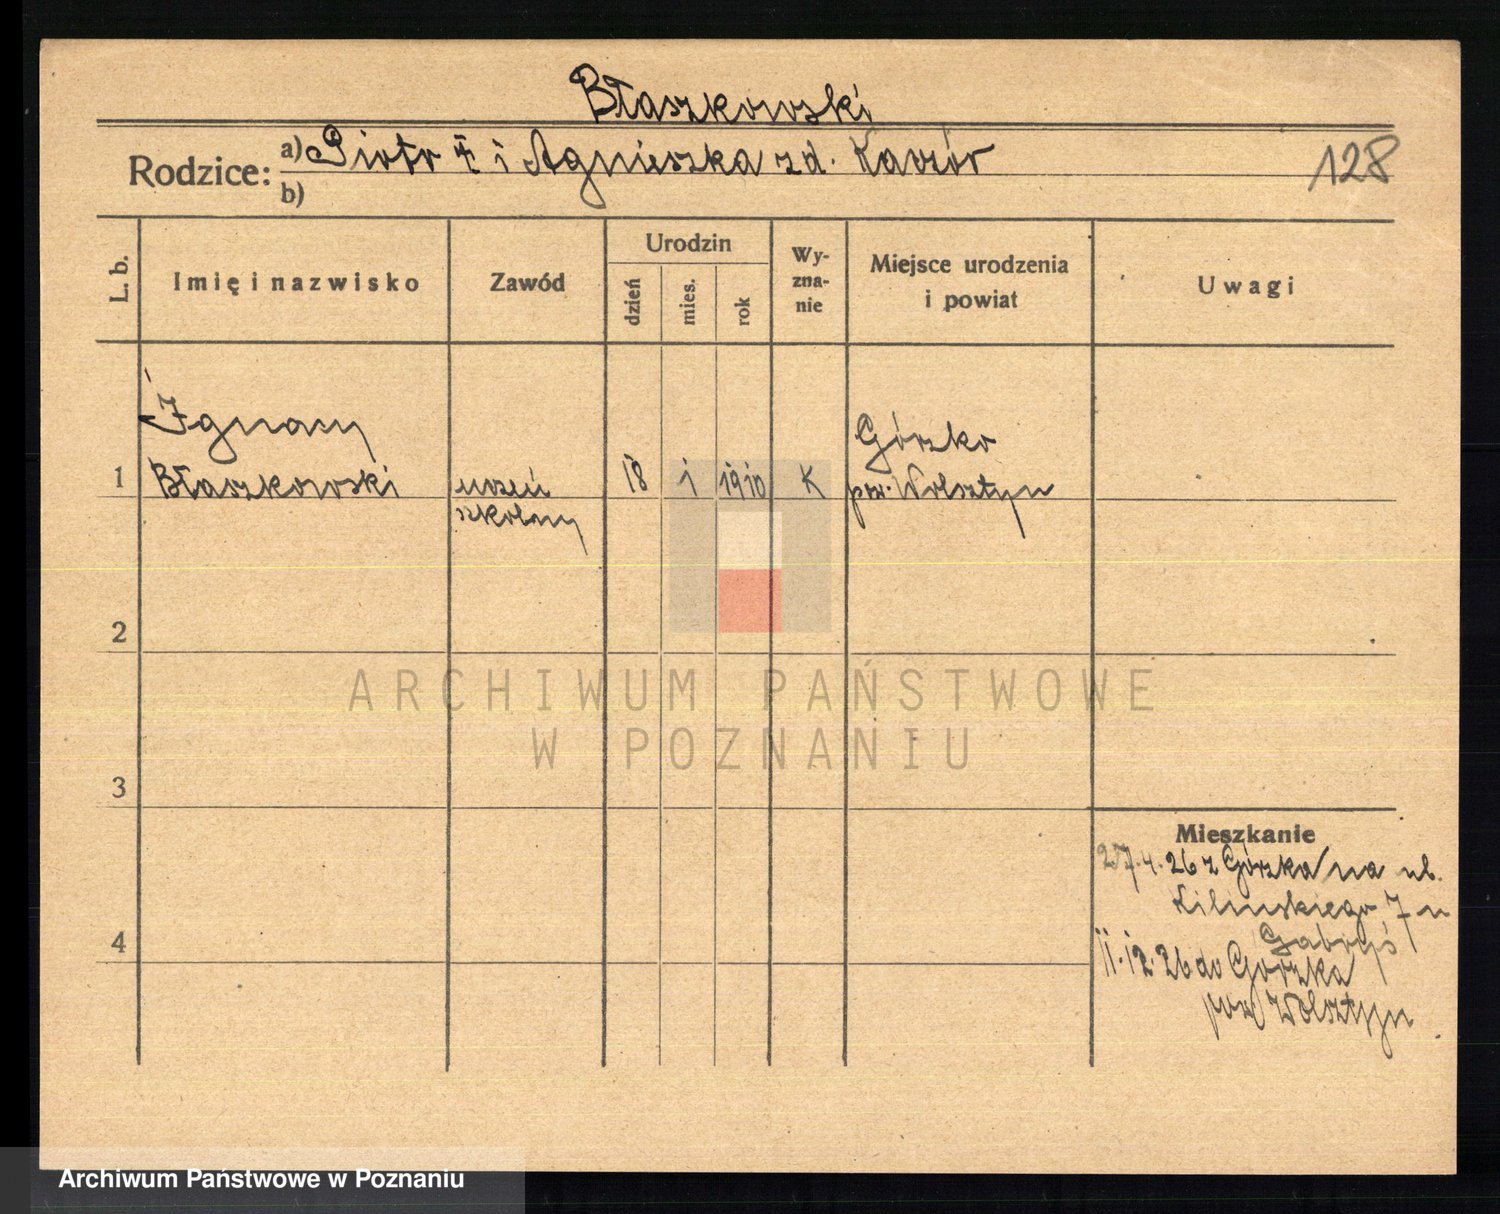 Błaszkowski
Rodzice: a) Piotr i Agnieszka zd. Kaczór
b)
128
L. b.
Imię i nazwisko
Zawód
Urodzin
dzień
mies.
rok
Wy-
zna-
nie
Miejsce urodzenia
i powiat
Uwagi
Ignacy
Górsko
1 Błaszkowski uczeń 18 1 1910 K pow. Wolsztyn
szkolny
2
ARCHIWUM PAŃSTWOWE
W POZNANIU
3
Mieszkanie
27.4.26 z Górska na ul.
Kilińskiego 7 u
Gabryś
4
11.12.26 do Górska
pow Wolsztyn
Archiwum Państwowe w Poznaniu